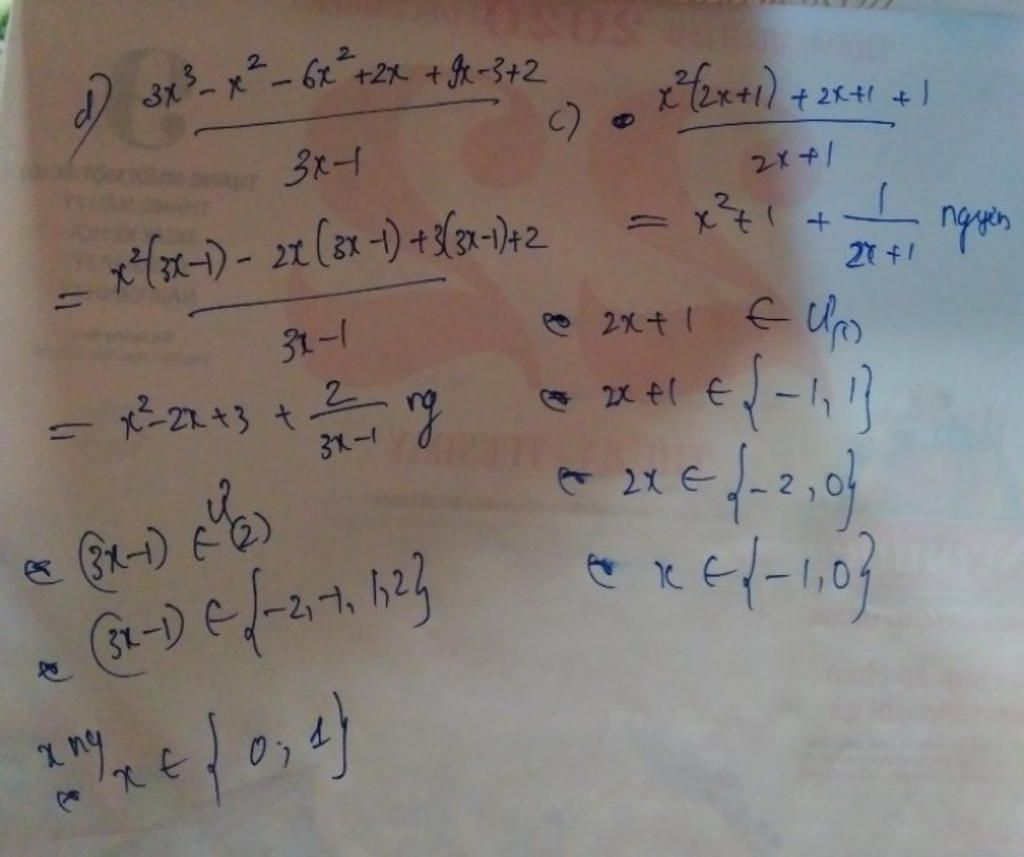 d) 3x³ - x² - 6x² + 2x + 9x - 3 + 2
3x - 1
= x²(3x-1) - 2x(3x-1) + 3(3x-1) + 2
3x - 1
= x² - 2x + 3 + 2/(3x-1) ng
⇔ (3x-1) ∈ Ư(2)
⇔ (3x-1) ∈ {-2, -1, 1, 2}
x ng
⇔ x ∈ {0; 1}
c) x²(2x+1) + 2x+1 + 1
2x + 1
= x² + 1 + 1/(2x+1) nguyên
⇔ 2x + 1 ∈ Ư(1)
⇔ 2x + 1 ∈ {-1, 1}
⇔ 2x ∈ {-2, 0}
⇔ x ∈ {-1, 0}
2020